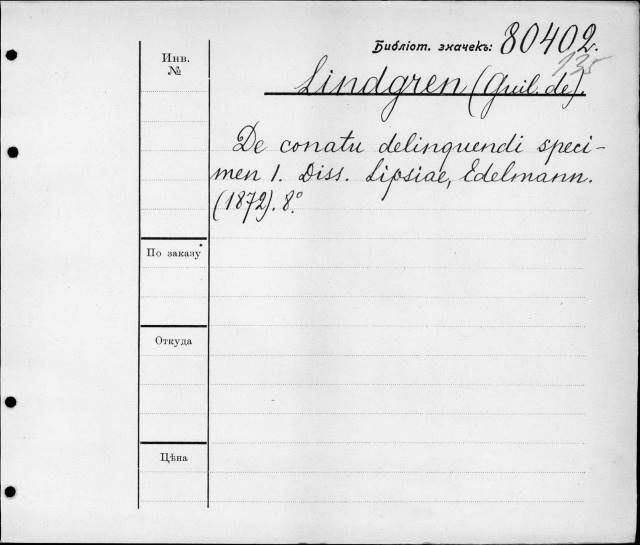 Библіот. значекъ: 80402.
135
Инв.
№
Lindgren (Guil. de).
De conatu delinquendi speci-
men 1. Diss. Lipsiae, Edelmann.
(1872). 8°.
По заказу
Откуда
Цѣна